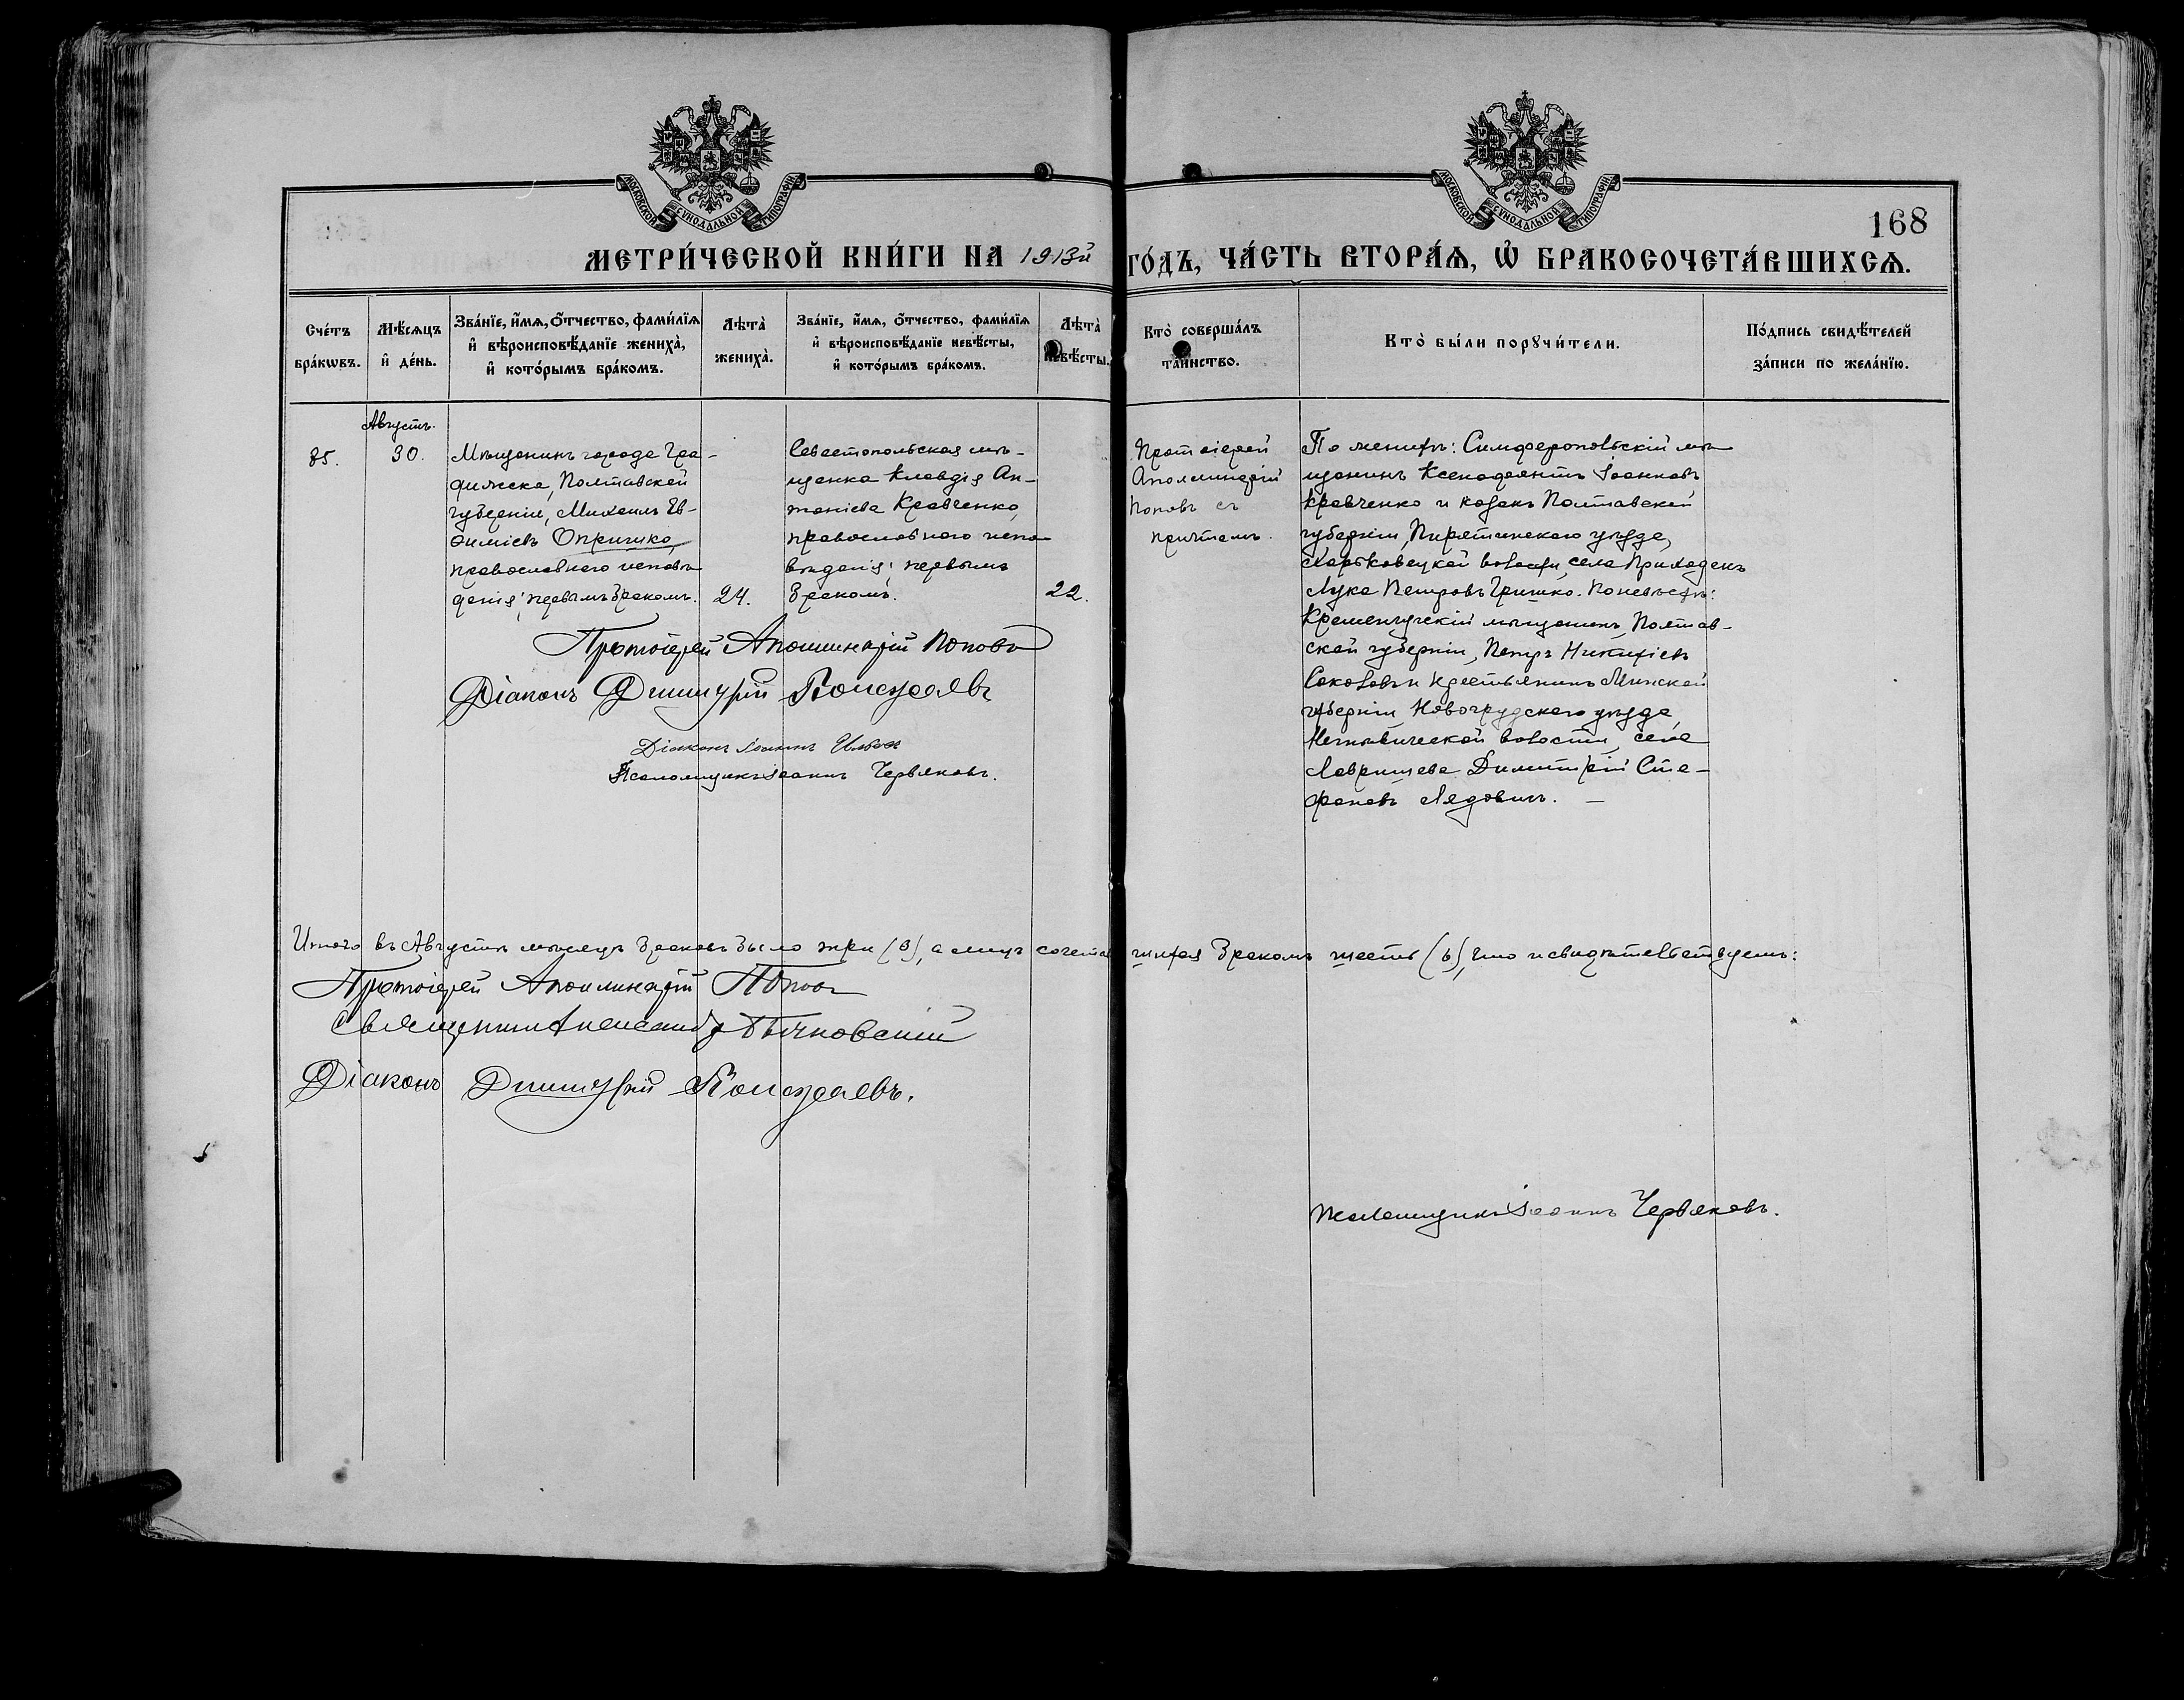 МОСКОВСКОЙ СѴНОДАЛЬНОЙ ТИПОГРАФІИ
МОСКОВСКОЙ СѴНОДАЛЬНОЙ ТИПОГРАФІИ
168
МЕТРИ́ЧЕСКОЙ КНИ́ГИ НА 1913й ГО́ДЪ, ЧА́СТЬ ВТОРА́Ѧ, Ѡ҆ БРАКОСОЧЕТА́ВШИХСѦ.
Сче́тъ бра́кѡвъ.
Мѣ́сѧцъ и҆ де́нь.
Зва́нїе, и҆́мѧ, ѻ҆́тчество, фами́лїѧ
и҆ вѣроисповѣ́данїе жениха̀,
и҆ кото́рымъ бра́комъ.
Лѣта̀
жениха̀.
Зва́нїе, и҆́мѧ, ѻ҆́тчество, фами́лїѧ
и҆ вѣроисповѣ́данїе невѣ́сты,
и҆ кото́рымъ бра́комъ.
Лѣта̀
невѣ́сты.
Кто̀ соверша́лъ
та́инство.
Кто̀ бы́ли порꙋчи́тели.
По́дпись свидѣ́телей
за́писи по жела́нїю.
Августъ.
85.
30.
Мѣщанинъ города Гра-
дижска, Полтавской
губерніи, Михаилъ Ев-
ѳиміевъ Опришко,
православнаго исповѣ
данія; первымъ бракомъ.
24.
Севастопольская мѣ-
щанка Клавдія Ан-
тоніева Кравченко,
православнаго испо
вѣданія; первымъ
бракомъ.
22.
Протоіерей
Аполлинарій
Поповъ съ
причтомъ.
По женихѣ: Симферопольскій мѣ
щанинъ Ксенофонтъ Іоанновъ
Кравченко и казакъ Полтавской
губерніи, Пирятинскаго уѣзда,
Харьковецкой волости, села Приходекъ
Лука Петровъ Гришко. По невѣстѣ:
Кременчугскій мѣщанинъ, Полтав-
ской губерніи, Петръ Никитіевъ
Соколовъ и крестьянинъ Минской
губерніи, Новогрудскаго уѣзда,
волости, села
Лавришева Димитрій Сте-
фановъ Лядовичъ. —
Протоіерей Аполлинарій Поповъ
Діаконъ Димитрій
Діаконъ Іоаннъ
Псаломщикъ Іоаннъ Червяковъ.
Итого въ Августѣ мѣсяцѣ браковъ было три (3), а лицъ сочетав шихся бракомъ шесть (6), что и свидѣтельствуемъ:
Протоіерей Аполлинарій Поповъ
Священникъ Александръ Бычковскій
Діаконъ Димитрій
Псаломщикъ Іоаннъ Червяковъ.